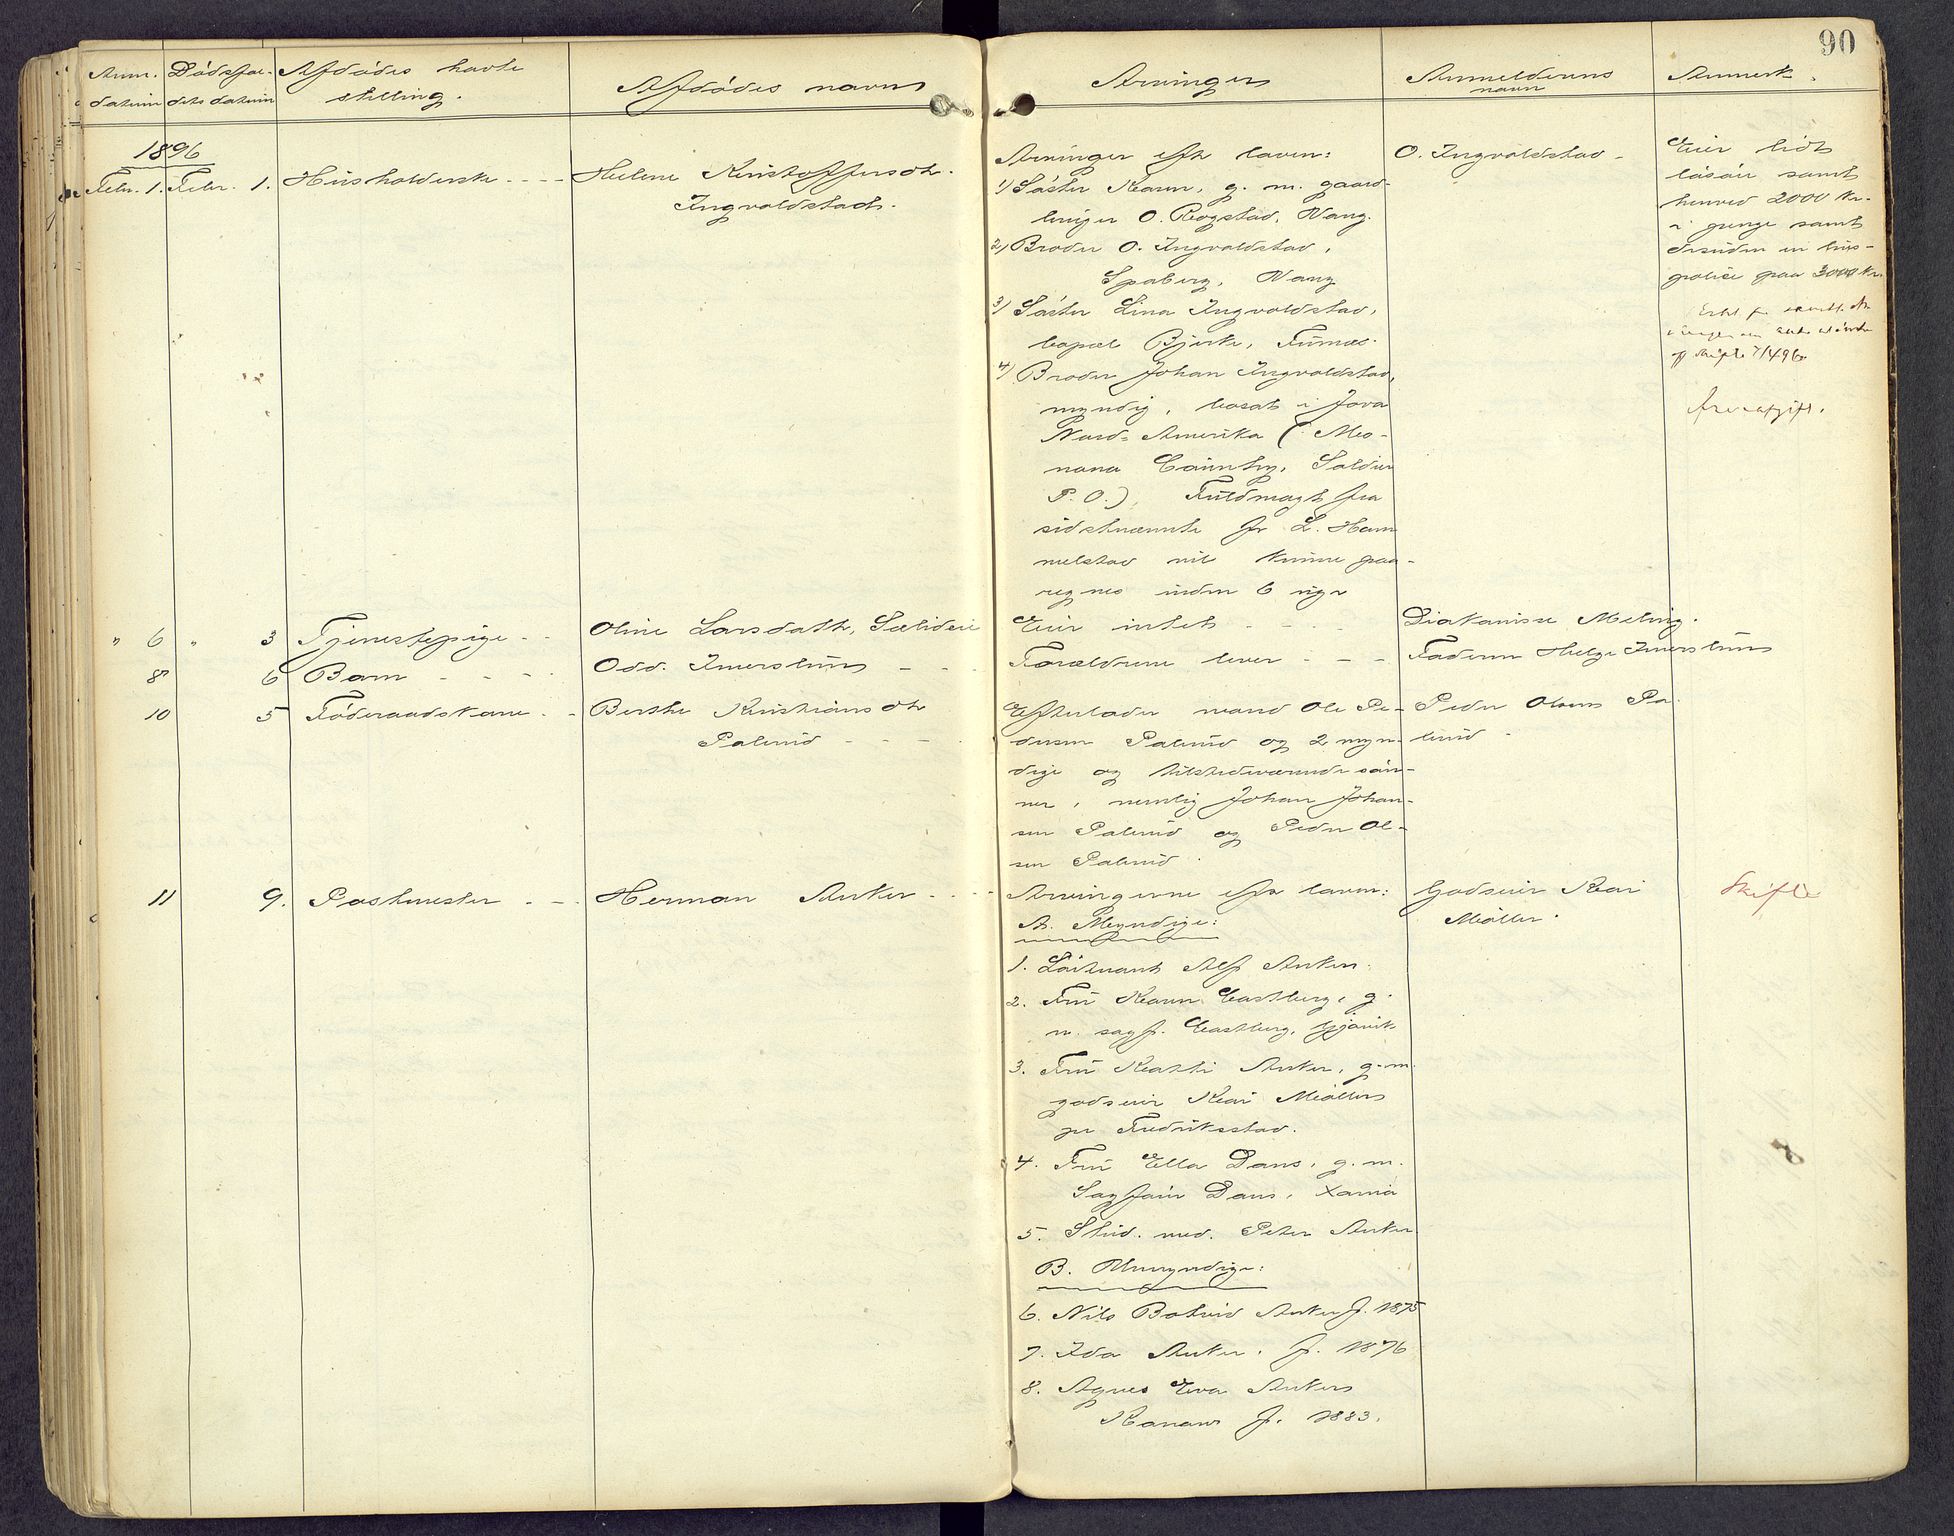 90
Anm. datum
Dødsfaldets datum
Afdødes havte stilling.
Afdødes navn
Arvinger
Anmelderens navn
Anmerk.
1896
Febr. 1. Febr. 1. Husholderske - - - Helene Kristoffersdtr. Ingvoldstad.
Arvinger efter loven:
1) Søster Karen, g. m. gaard-
bruger O. Rogstad, Vang.
2) Broder O. Ingvoldstad,
Spaberg, Vang
3) Søster Lina Ingvoldstad,
bopæl Bjerke, Furnæs.
4) Broder Johan Ingvoldstad,
myndig, bosat i Jova
Nord-Amerika (Mo-
nona County, Soldier
P. O.), Fuldmagt fra
sidstnævnte for L. Ham-
melstad vil kunne paa-
regnes inden 6 uger
O. Ingvoldstad -
Eier lidt
løsøre samt
henved 2000 Kr.
i penge samt
desuden en livs-
police paa 3000 Kr.
af skifte 7/4 96.
Arveafgift.
" 6 " 3 Tjenestepige - - Oline Larsdatter, Sælideie
Eier intet - - - -
Diakonisse Meling.
8 6 Barn - - - - Odd. Imerslund - - -
Forældrene lever - - -
Faderen Helge Imerslund
10 5 Føderaadskone - - Berthe Kristiansdtr Palerud - - - -
Efterlader mand Ole Pe-
dersen Palerud og 2 myn-
dige og tilstedeværende søn-
ner, nemlig Johan Johan-
sen Palerud og Peder Ol-
sen Palerud.
Peder Olsen Pa-
lerud -
11 9. Postmester - - - Herman Anker - - - -
Arvingerne efter loven:
A. Myndige:
1. Løitnant Alf Anker.
2. Fru Karen Castberg, g.
m. sagf. Castberg, Gjøvik
3. Fru Kathi Anker, g. m.
godseier Kai Møller
pr Fredriksstad.
4. Fru Ella Dons, g. m.
Sagfører Dons, Xania
5. Stud. med. Peter Anker.
B. Umyndige:
6. Nils Botvid Anker f. 1875
7. Ida Anker, f. 1876
8. Agnes Eva Anker
f. 1883.
Godseier Kai
Møller.
Skifte